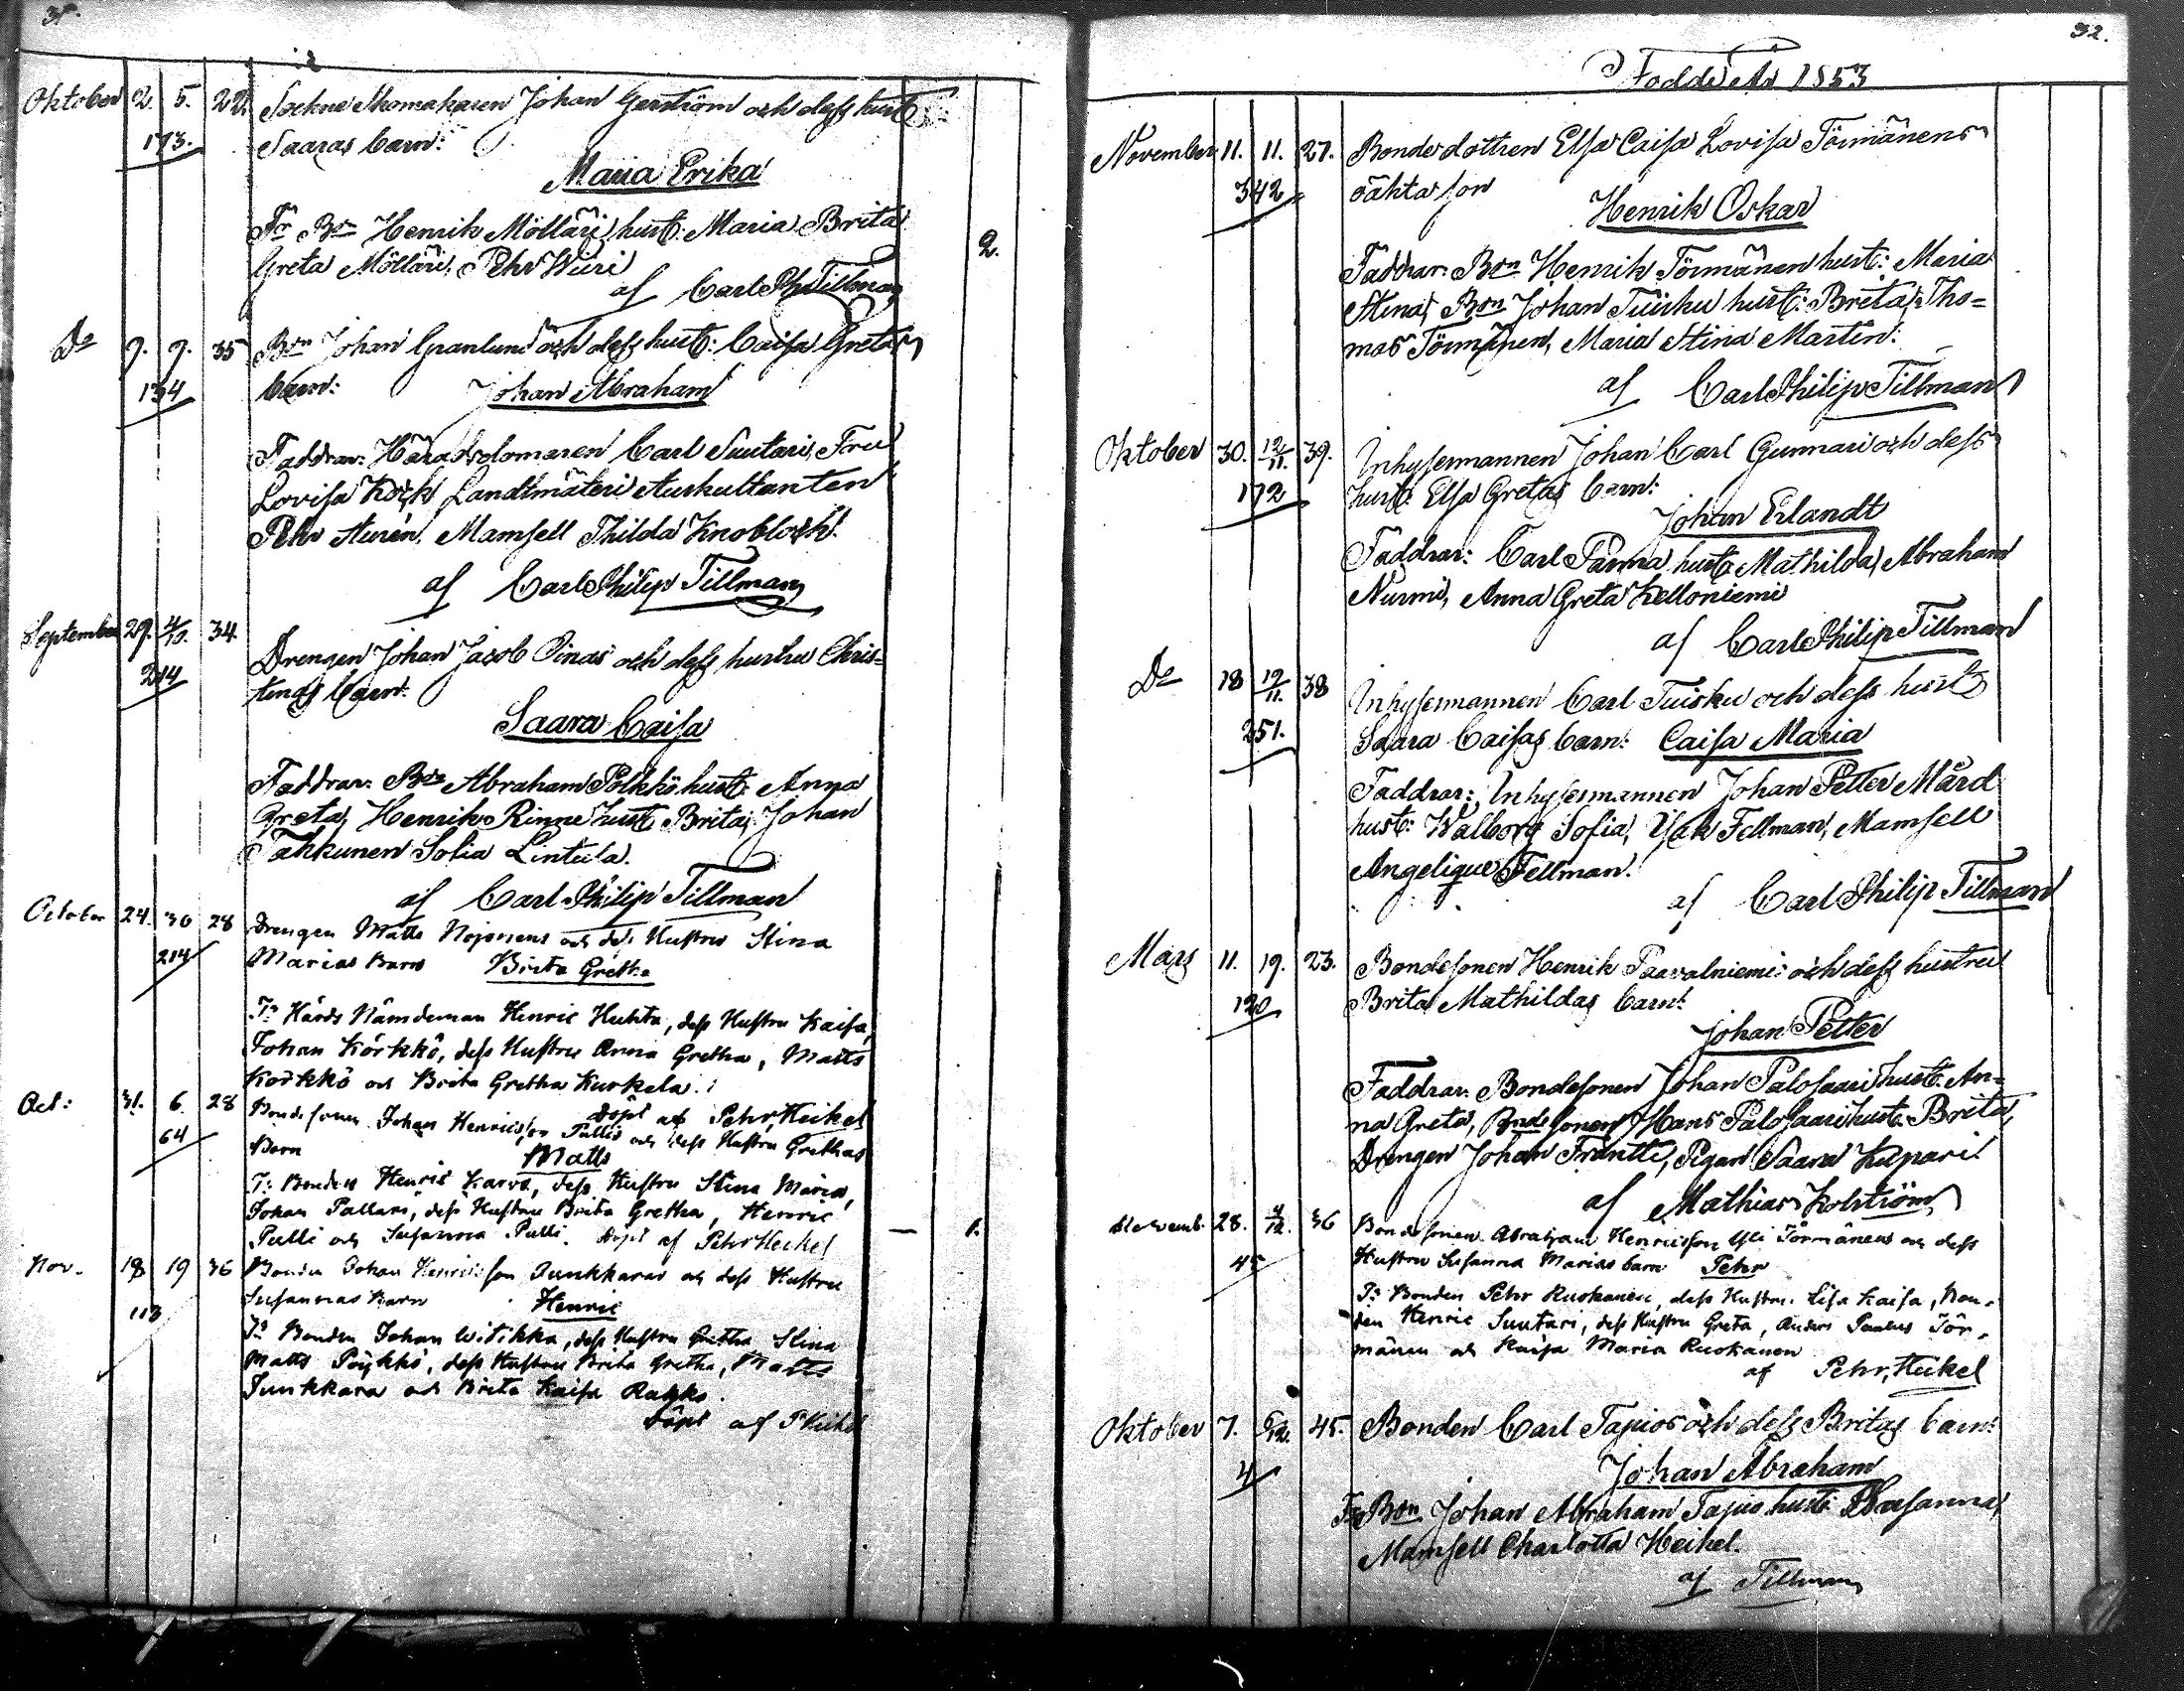 31.
Oktober 2. 5. 22. Sockne Skomakaren Johan Gerström och dess hust:
173. Saaras barn:
Maria Erika
Fr Bon Henrik Mölläri, hust: Maria Brita
Greta Mölläri, Pehr Wuri
2.
af Carl Ph Tillman
Do 9. 9. 35 Bon Johan Granlund och dess hust: Caisa Gretas
134 barn: Johan Abraham
Faddrar: Häradsdomaren Carl Suutari, Fru
Lovisa Kock Landtmäteri Auskultanten
Pehr Aurén, Mamsell Thilda Knobloch.
af Carl Philip Tillman
September 29. 4/10. 34. Drengen Johan Jacob Pinas och dess hustru Chris=
214 tinas barn:
Saara Caisa
Faddrar: Bon Abraham Pölkkö hust: Anna
Greta, Henrik Rinne hust: Brita, Johan
Tahkunen Sofia Lintula.
af Carl Philip Tillman
October 24. 30 28 Drengen Matts Nojonens och dess Hustru Stina
214 Marias Barn Brita Gretha
Fr Härds Nämdeman Henric Huhta, dess Hustru Kaisa,
Johan Körkkö, dess Hustru Anna Gretha, Matts
Körkkö och Brita Gretha Kurkela.
Döpt af Pehr Heikel
Oct: 31. 6. 28 Bondesonen Johan Henricsson Pullis och dess Hustru Grethas
64 Barn Matts
Fr Bonden Henric Karvo, dess Hustru Stina Maria,
Johan Pallari, dess Hustru Brita Gretha, Henric
Pulli och Susanna Pulli. Döpt af Pehr Heikel — 1.
Nov. 18 19 36 Bonden Johan Henricsson Junkkaras och dess Hustru
113 Susannas Barn Henric
Fr Bonden Johan Witikka, dess Hustru Gretha Stina
Matts Pöykkö, dess Hustru Brita Gretha, Matts
Junkkara och Brita Kaisa
Döpt af P Heikel
32.
Födde År 1853
November 11. 11. 27. Bondedottren Elsa Caisa Lovisa Törmänens
342 oäkta son
Henrik Oskar
Faddrar: Bon Henrik Törmänen hust: Maria
Stina, Bon Johan Tuisku hust: Breta, Tho=
mas Törmänen, Maria Stina Martin:
af Carl Philip Tillman
Oktober 30. 12/11. 39. Inhysesmannen Johan Carl Gunnari och dess
172 hust: Elsa Gretas barn:
Johan Erlandt
Faddrar: Carl Panna hust: Mathilda, Abraham
Nurmi, Anna Greta Kelloniemi
af Carl Philip Tillman
Do 18 12/11. 38 Inhysesmannen Carl Tuisku och dess hust:
251. Saara Caisas barn: Caisa Maria
Faddrar: Inhysesmannen Johan Petter Mård
hust: Walborg Sofia, Isak Fellman, Mamsell
Angelique Fellman.
af Carl Philip Tillman
Mars 11. 19. 23. Bondesonen Henrik Paavalniemi och dess hustru
120 Brita Mathildas barn:
Johan Petter
Faddrar: Bondesonen Johan Palosaari hust: An=
na Greta, Bndesonen Hans Palosaari hust: Brita,
Drengen Johan Frantti, Pigan Saara Kupari.
af Mathias Kolström
Novemb 28. 4/12. 36 Bondesonen Abraham Henricsson Yli Törmänens och dess
45 Hustru Susanna Marias barn Pehr
Fr Bonden Pehr Ruokanen, dess Hustru Lisa Kaisa, Bon-
den Henric Suutari, dess Hustru Greta, Anders Paulus Tör-
mänen och Kaisa Maria Ruokanen
af Pehr Heikel
Oktober 7. 6/12. 45. Bonden Carl Tapios och dess Britas barn:
4 Johan Abraham
Fr Bon Johan Abraham Tapio hust: Susanna,
Mamsell Charlotta Heikel.
af Tillman